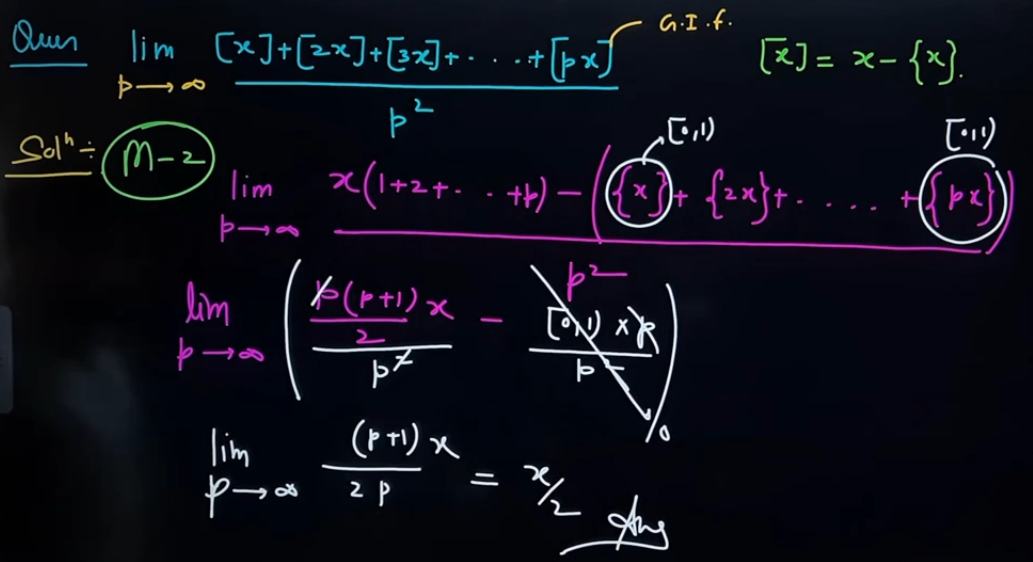 Ques lim p→∞ [x]+[2x]+[3x]+. . . .+[px] / p² G.I.f. [x] = x - {x}.
Solⁿ ÷ M-2
lim p→∞ x(1+2+. . . +p) - ({x} + {2x}+. . . . . +{px}) / p² [0,1) [0,1)
lim p→∞ ( p(p+1)x / 2 / p² - [0,1) × p / p² ) 0
lim p→∞ (p+1)x / 2p = x/2 Ans